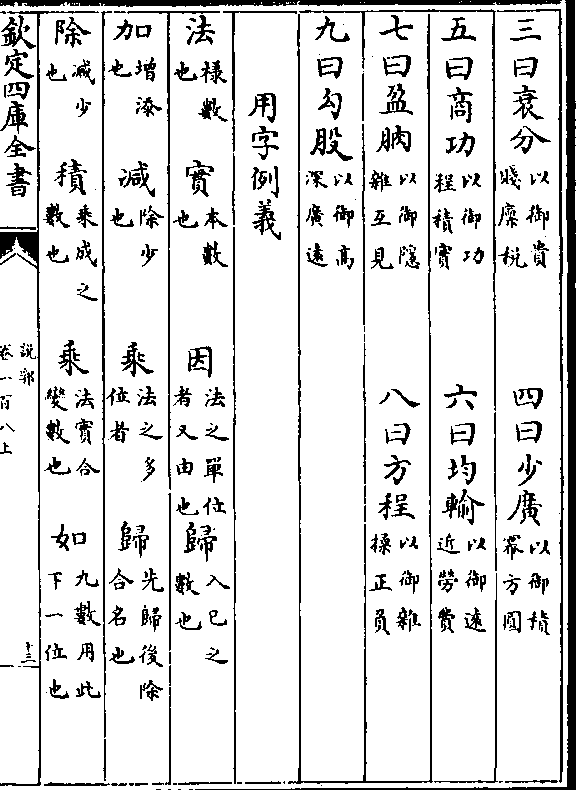 三曰衰分以御貴賤廩稅　四曰少廣以御積羃方圓
五曰商功以御功程積實　六曰均輸以御遠近勞費
七曰盈朒以御隱雜互見　八曰方程以御雜揉正負
九曰勾股以御高深廣遠
用字例義
法㨾數也　實本數也　因法之單位者又由也　歸入已之數也
加增添也　減除少也　乘法之多位者　歸先歸後除合名也
除减少也　積乘成之數也　乘法實合變數也　如九數用此下一位也
欽定四庫全書
說郛
卷一百八上
十三